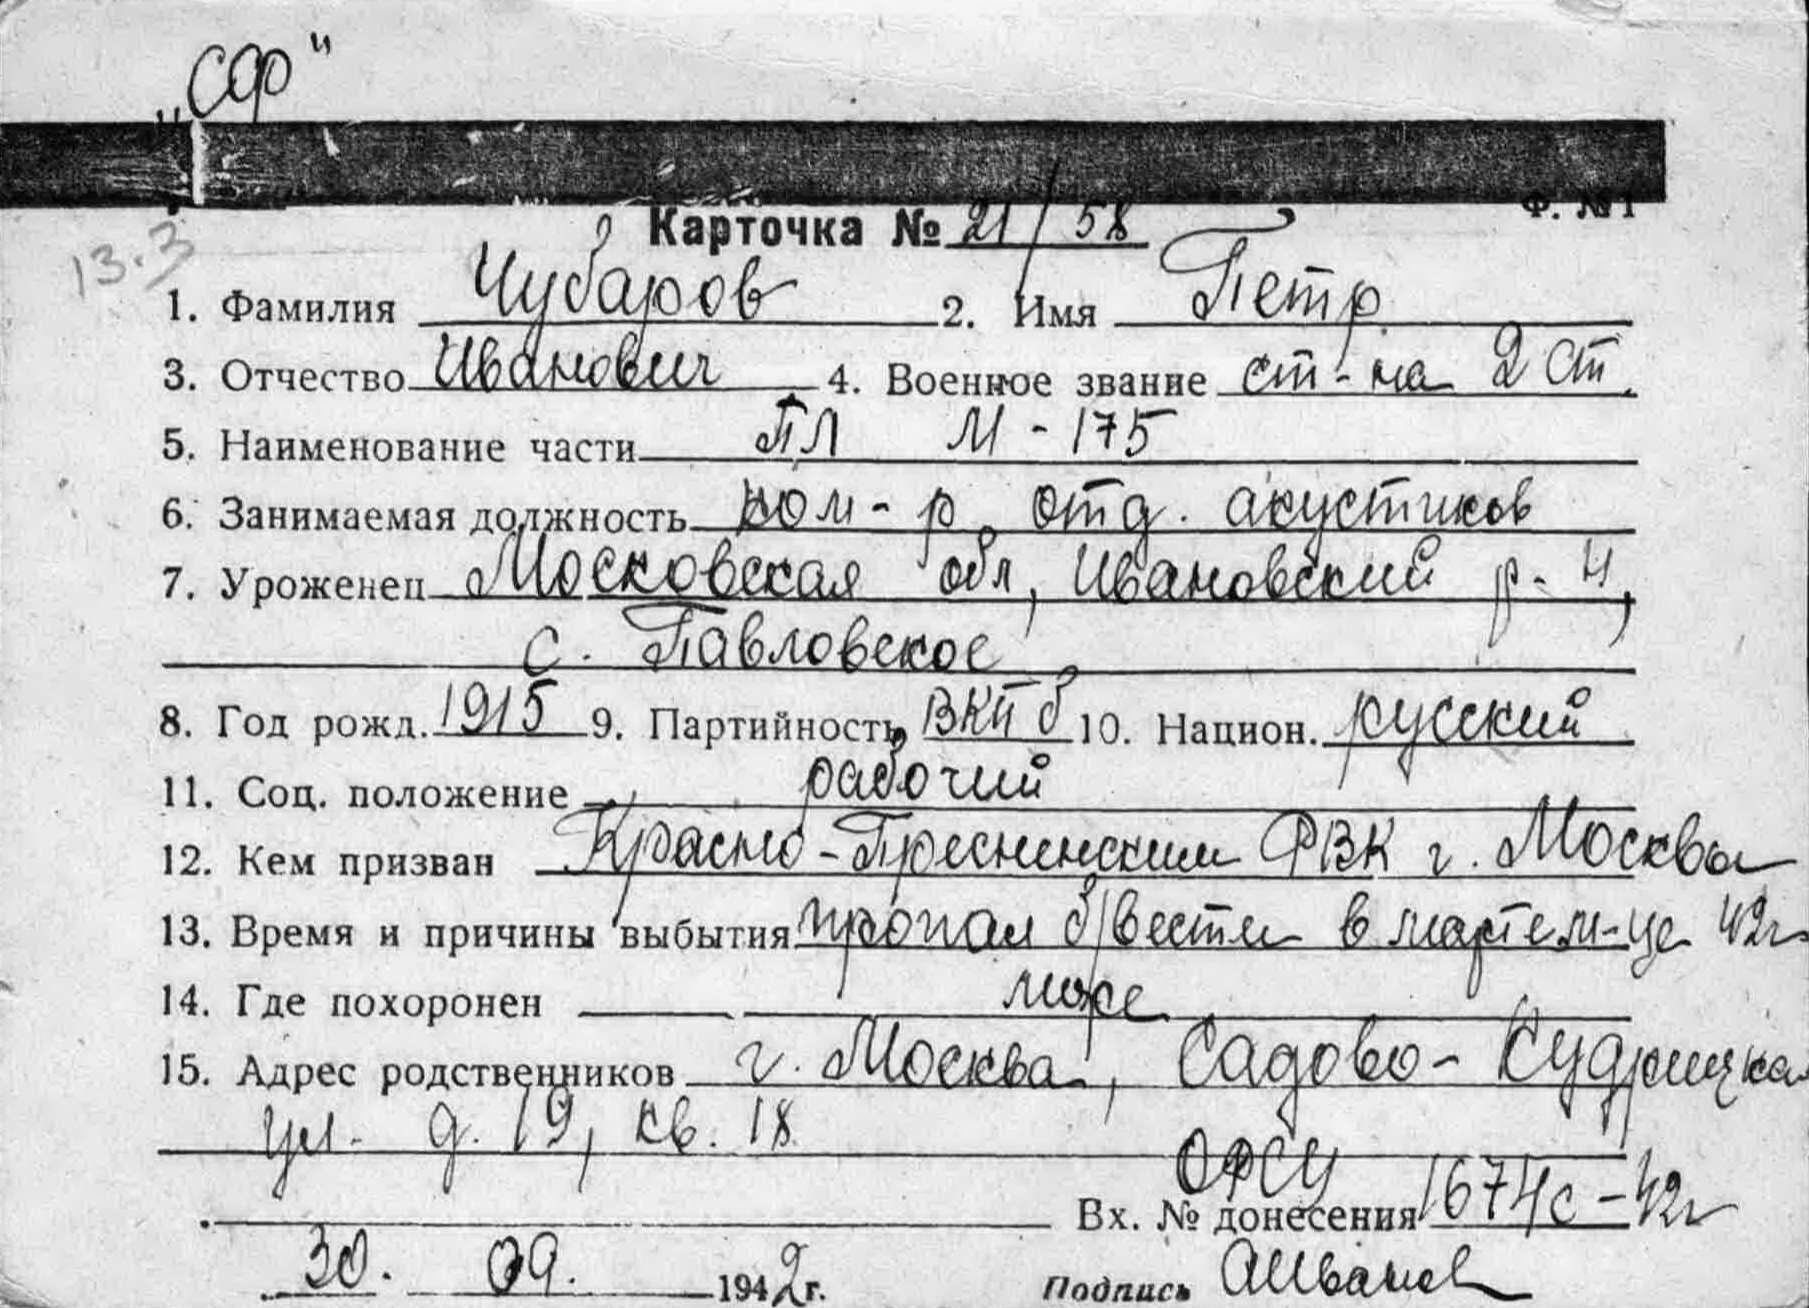 „СФ"
Ф. №1
Карточка № 21/58
13.3
1. Фамилия Чубаров 2. Имя Петр
3. Отчество Иванович 4. Военное звание ст-на 2 ст.
5. Наименование части ПЛ М-175
6. Занимаемая должность ком-р отд. акустиков
7. Уроженец Московская обл, Ивановский р-н,
с. Павловское
8. Год рожд. 1915 9. Партийность ВКП б 10. Национ. русский
11. Соц. положение рабочий
12. Кем призван Красно-Пресненским РВК г. Москвы
13. Время и причины выбытия пропал б/вести в море
14. Где похоронен море
15. Адрес родственников г. Москва, Садово-Кудрицкая
ул. д. 19, кв. 18
ОФСУ
Вх. № донесения 1674с-42г
30. 09. 1942г. Подпись